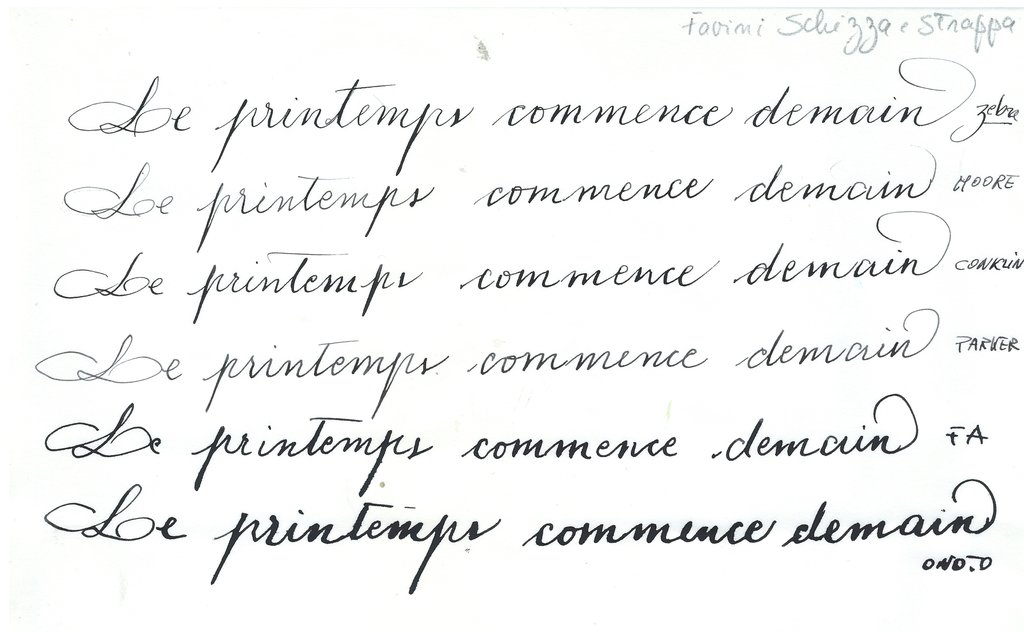 Favini Schizza e Strappa
Le printemps commence demain zebra
Le printemps commence demain MOORE
Le printemps commence demain CONKLIN
Le printemps commence demain PARKER
Le printemps commence demain FA
Le printemps commence demain